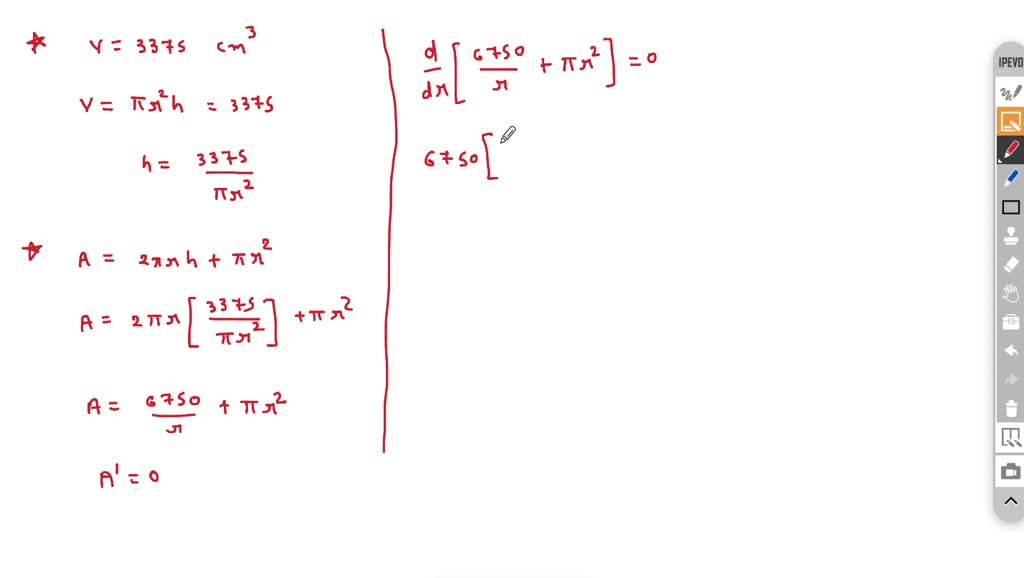 ★ V = 3375 cm³
V = πr²h = 3375
h = 3375/πr²
★ A = 2πrh + πr²
A = 2πr[3375/πr²] + πr²
A = 6750/r + πr²
A' = 0
d/dr[6750/r + πr²] = 0
6750[
IPEVO